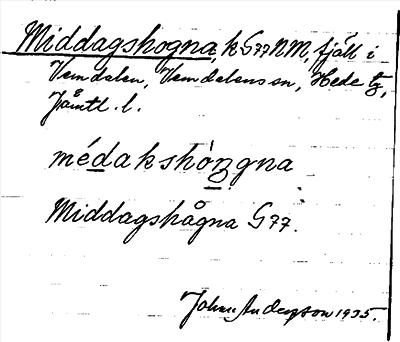 Middagshogna, k G77 NM, fjäll i
Vemdalen, Vemdalens sn, Hede tg,
Jämtl. l.
médakshóŋgna
Middagshågna G77.
Johan Anderson 1935.